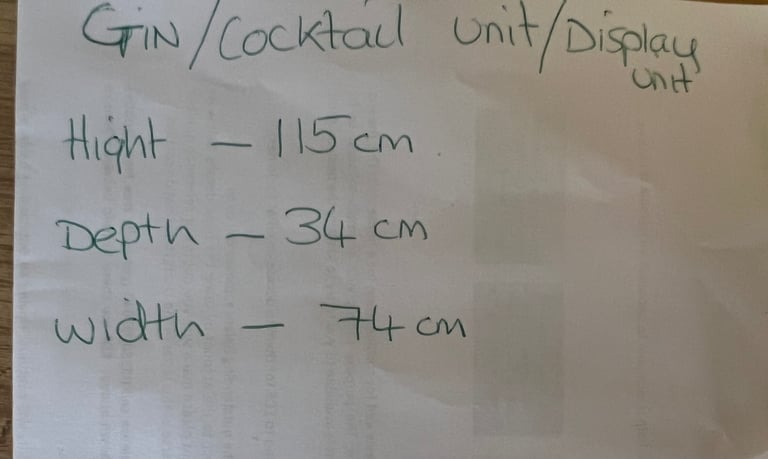 GIN/Cocktail unit/Display
unit
Hight - 115cm.
Depth - 34 cm
Width - 74 cm